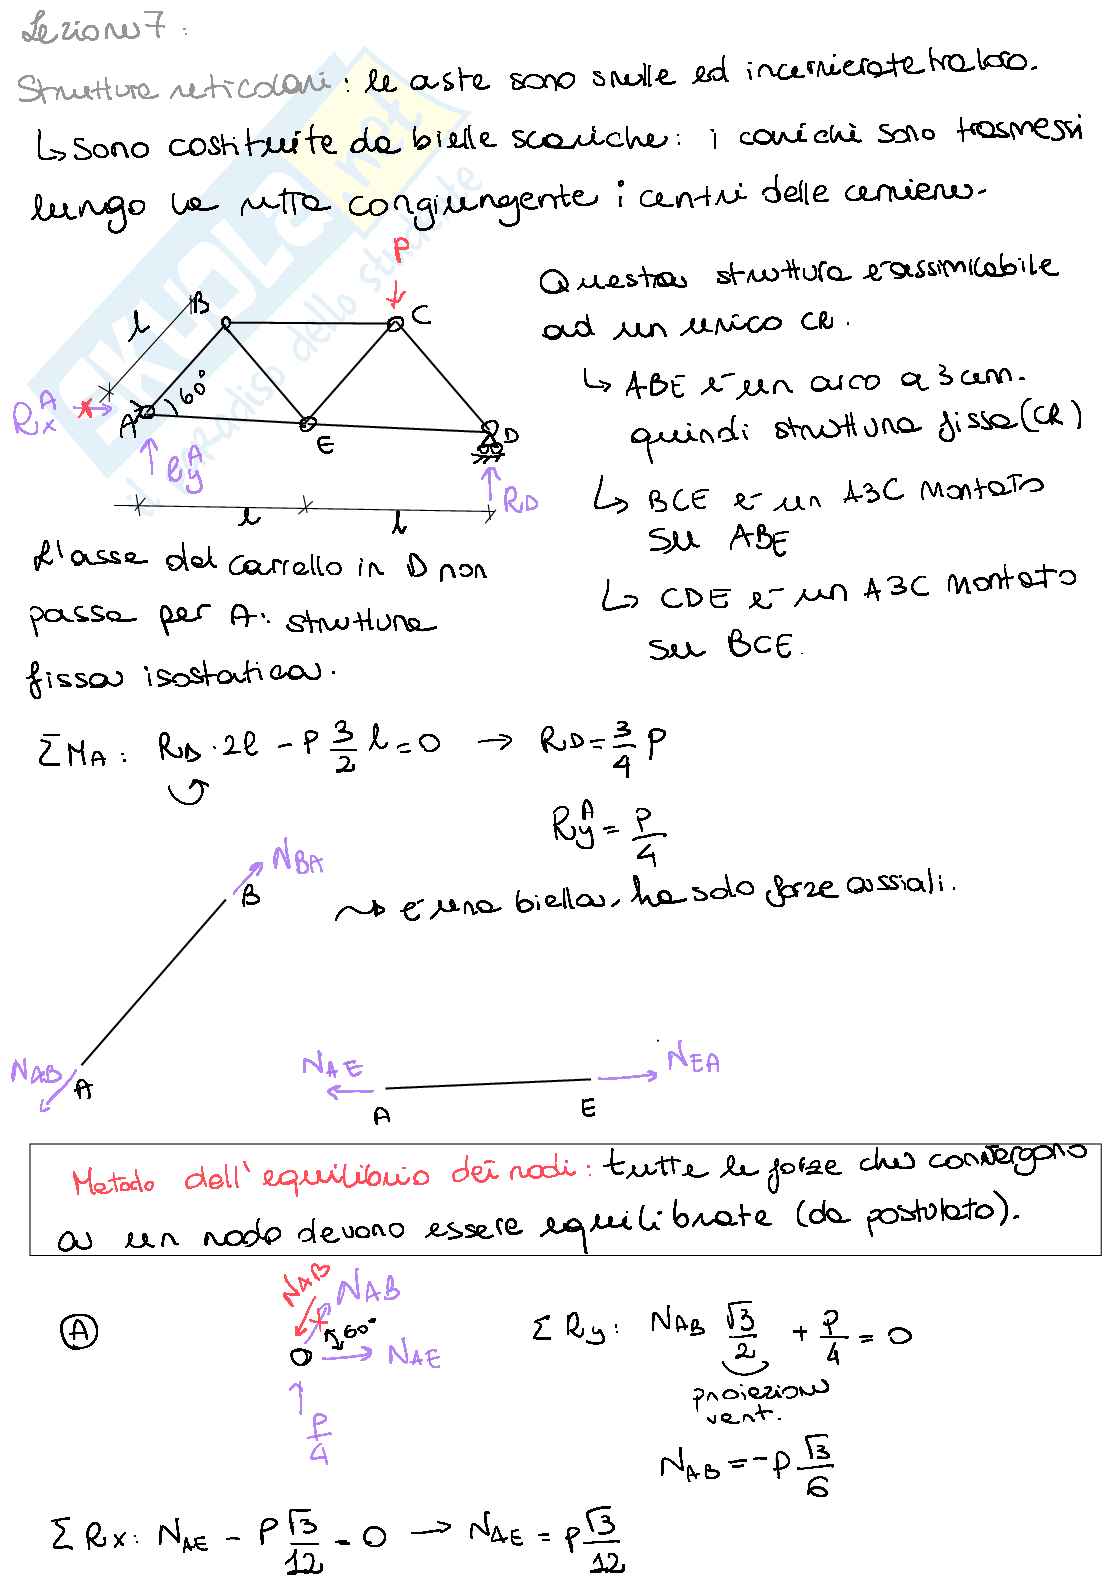 Lezione 7:
Strutture reticolari: le aste sono snelle ed incernierate tra loro.
↳ Sono costituite da bielle scariche: i carichi sono trasmessi
lungo la retta congiungente i centri delle cerniere.
P
B
C
l
60°
R_x^A
A
E
D
R_y^A
R_D
l
l
Questa struttura è assimilabile
ad un unico CR.
↳ ABE è un arco a 3 cern.
quindi struttura fissa (CR)
↳ BCE è un A3C montato
su ABE
↳ CDE è un A3C montato
su BCE.
L'asse del carrello in D non
passa per A: struttura
fissa isostatica.
ΣM_A: R_D · 2l - P 3/2 l = 0 → R_D = 3/4 P
R_y^A = P/4
N_BA
B
~> è una biella, ha solo forze assiali.
N_AB
A
N_AE
N_EA
A
E
Metodo dell'equilibrio dei nodi: tutte le forze che convergono
a un nodo devono essere equilibrate (da postulato).
A
N_AB
N_AB
60°
N_AE
P/4
ΣR_y: N_AB √3/2 + P/4 = 0
proiezione
vert.
N_AB = -P √3/6
ΣR_x: N_AE - P √3/12 = 0 → N_AE = P √3/12
SKUOLA.net
il paradiso dello studente